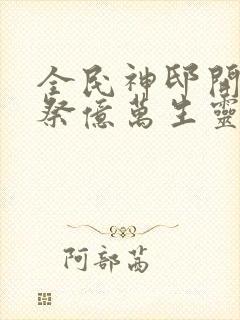 全民神邸開
祭億萬生靈
阿部茜